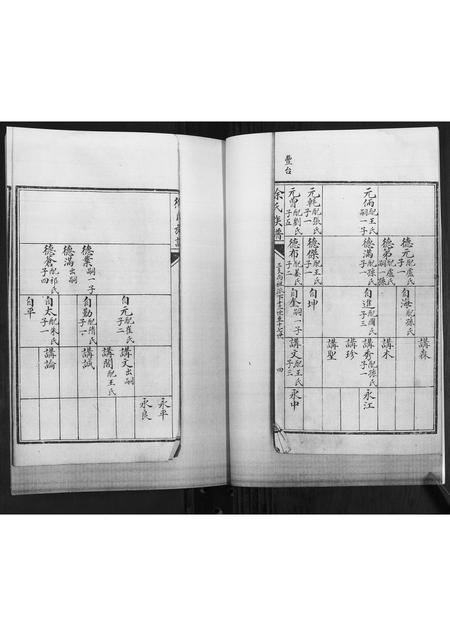 豐台
元倆 配王氏 子一
元乾 配張氏 子一
元曾 配劉氏 子五
德元 配盧氏 子一
德弟 配盧氏
德滿 配孫氏 子一
德傑 配王氏 子一
德布 配姜氏 子二
自海 配孫氏
自進 配閻氏 子三
自坤
自金 嗣一子
講森
講木
講秀 配孫氏 子一
講珍
講聖
講文 配王氏 子三
永江
永中
徐氏族譜
四
德業 嗣一子
德滿 出嗣
德倉 配祁氏 子四
自元 配崔氏 子二
自勤 配隋氏 子二
自太 配朱氏 子一
自平
講文 出嗣
講閣 配王氏
講誠
講論
永平
永良